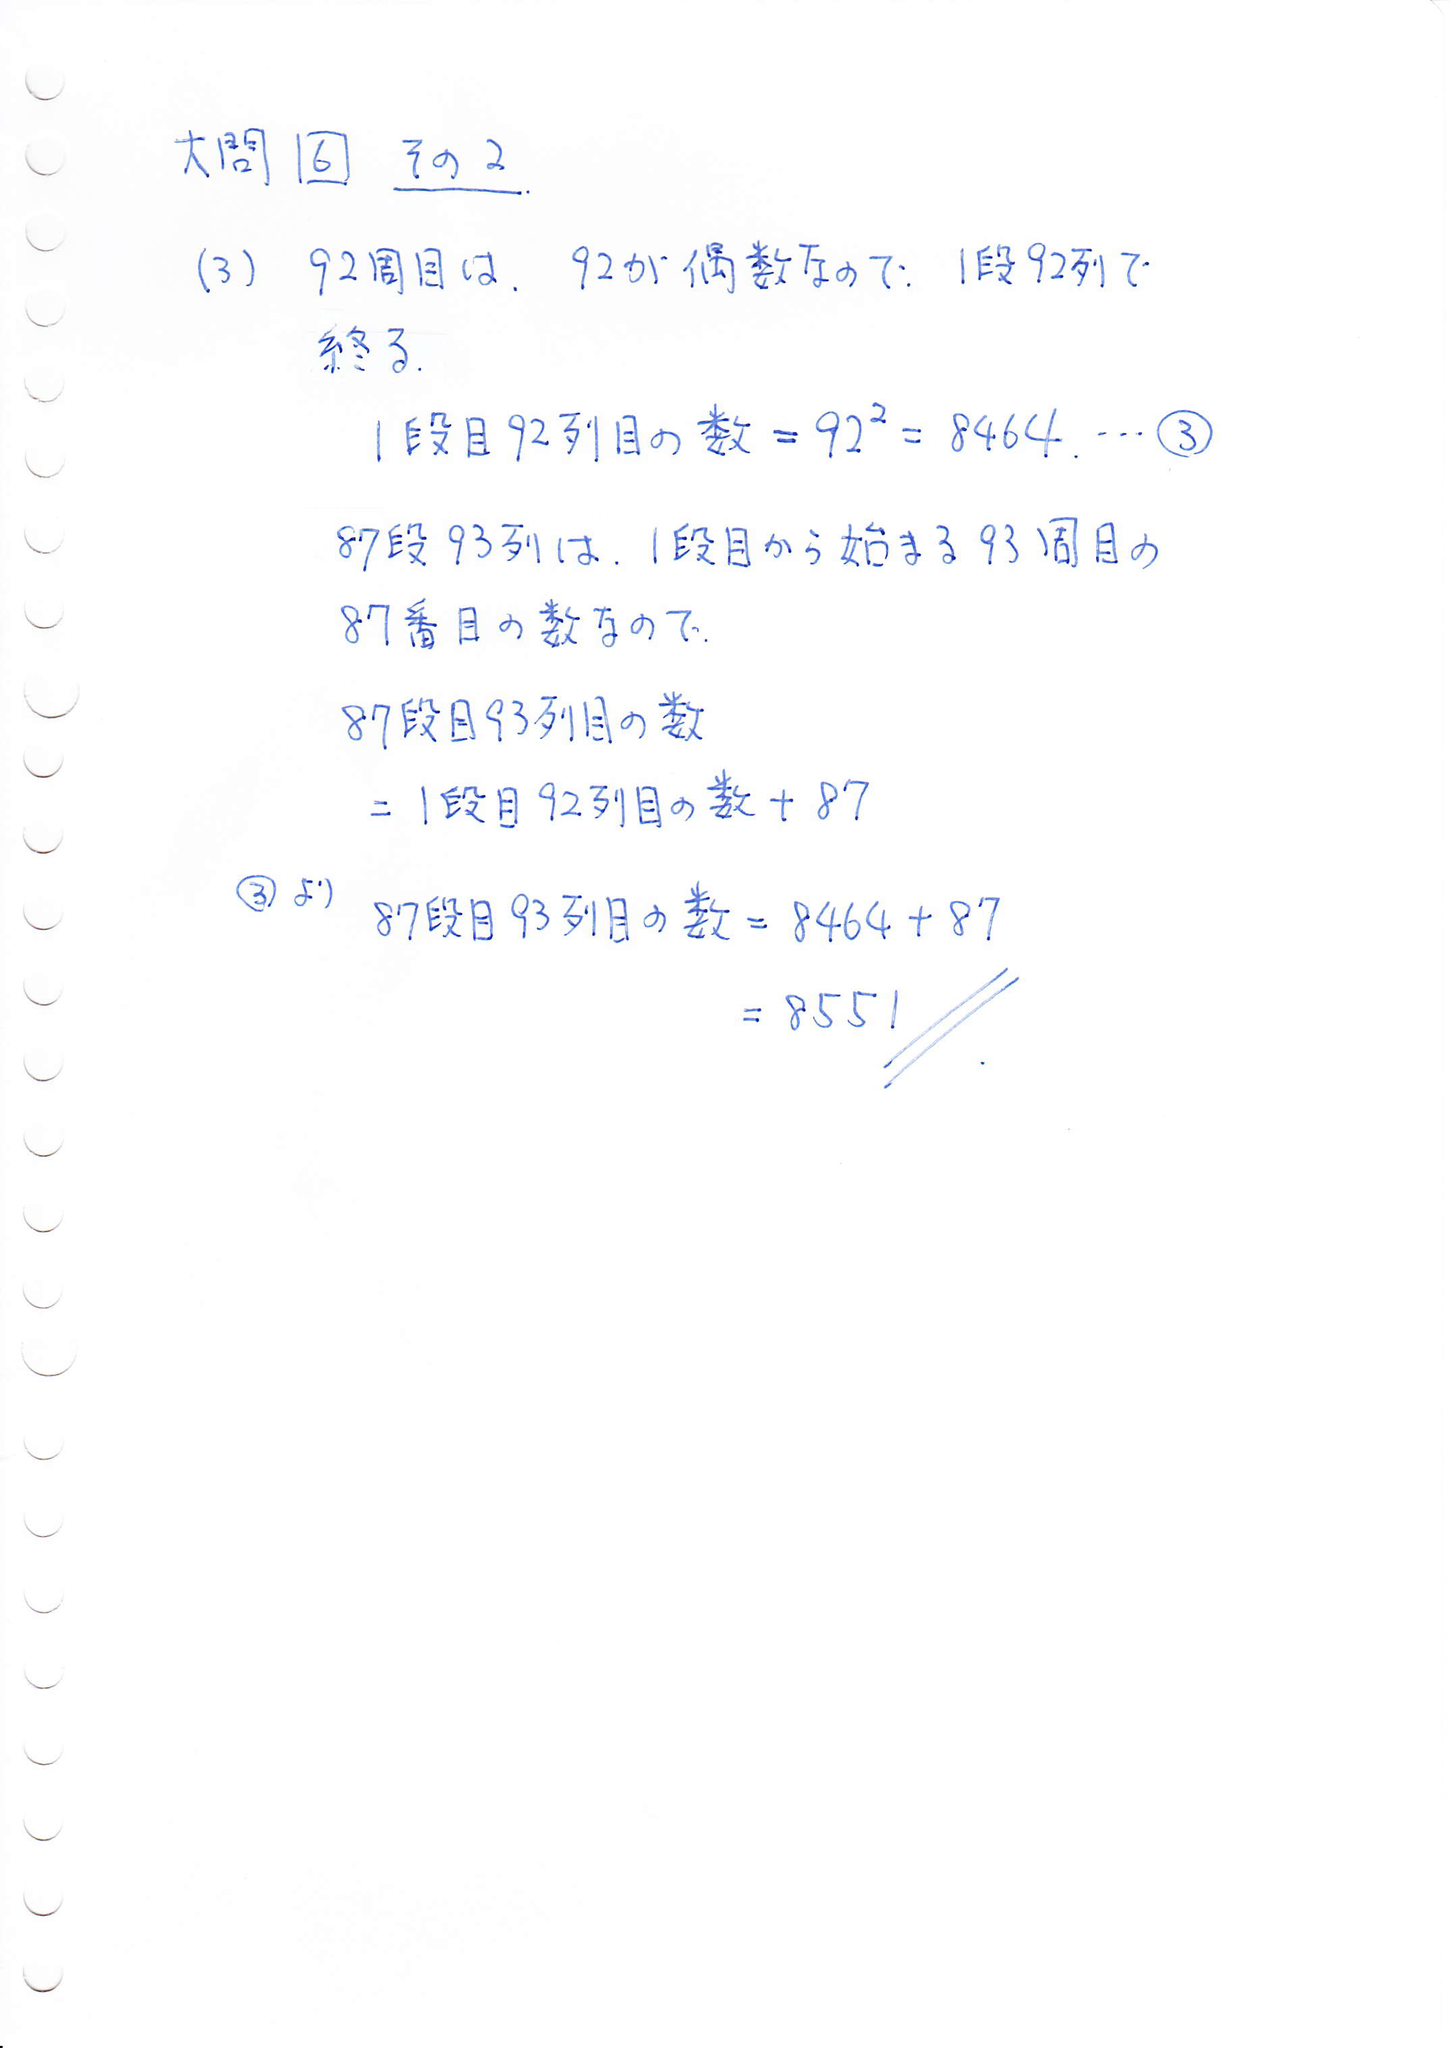 大問 6 その2
(3) 92周目は、92が偶数なので、1段92列で
終る.
1段目92列目の数=92²=8464. … ③
87段93列は、1段目から始まる93周目の
87番目の数なので、
87段目93列目の数
=1段目92列目の数+87
③より
87段目93列目の数=8464+87
=8551